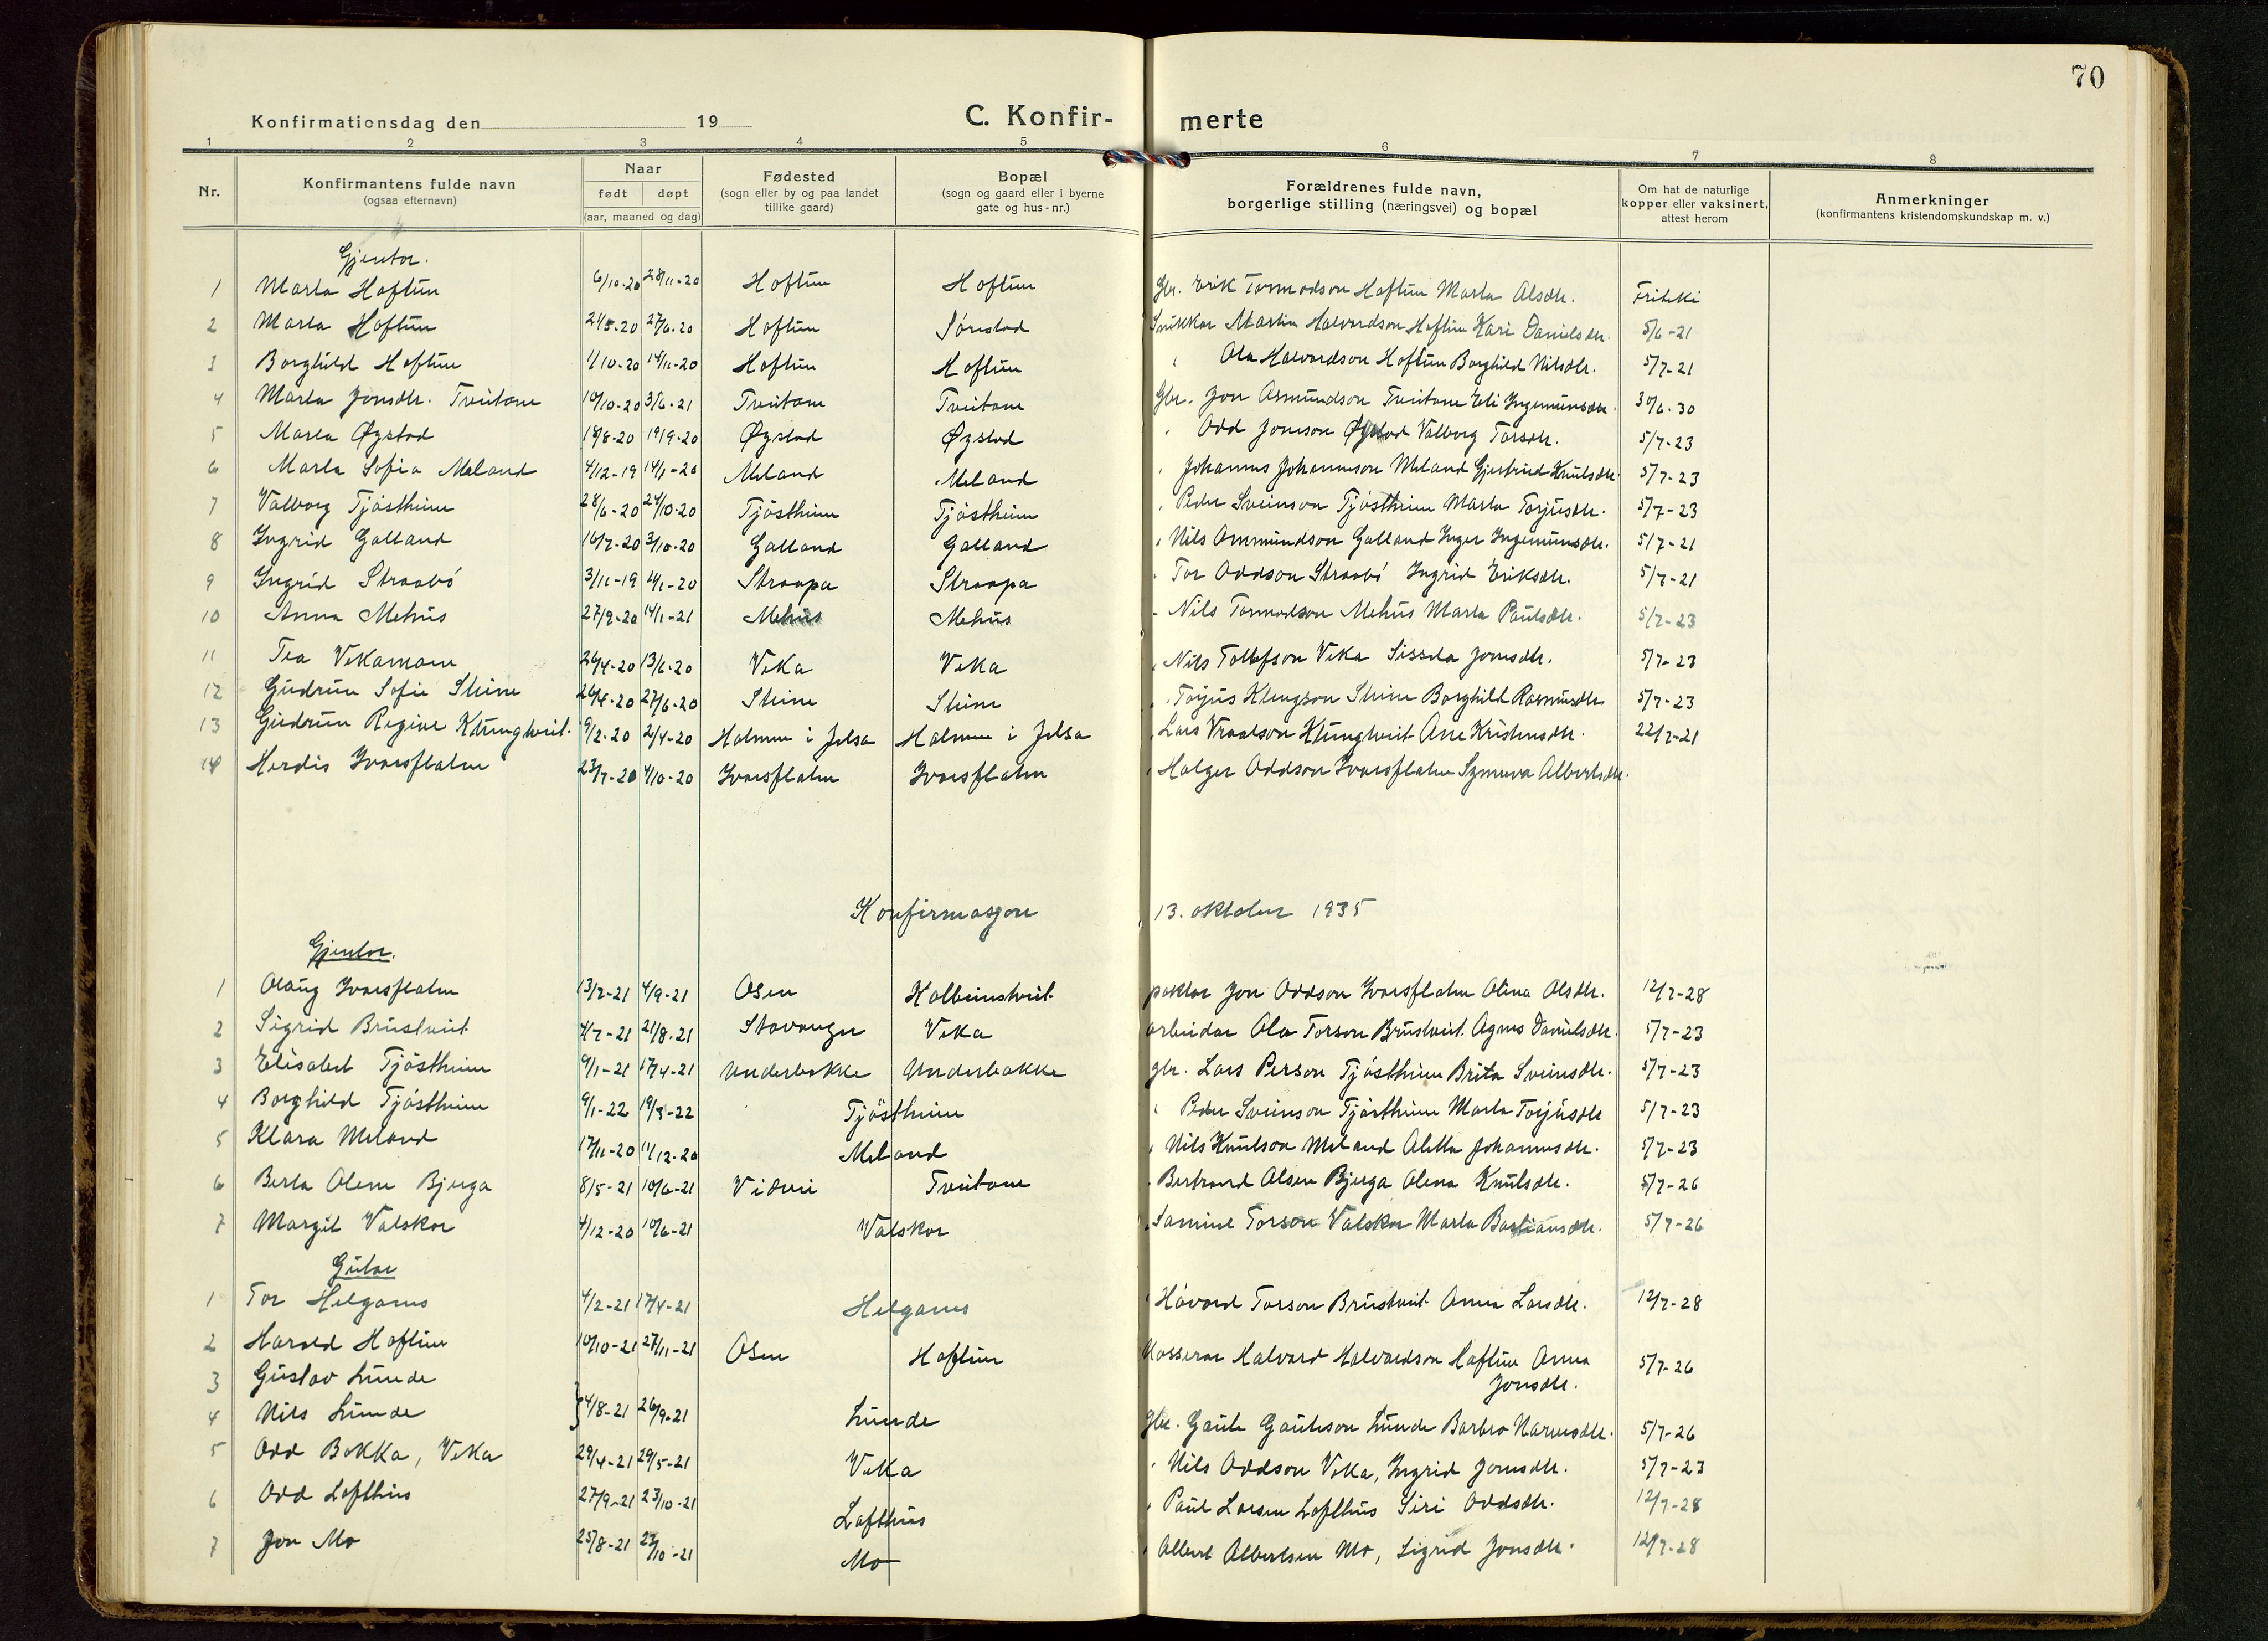 70
Konfirmationsdag den 19
C. Konfir- merte
1 2 3 4 5 6 7 8
Nr.
Konfirmantens fulde navn
(ogsaa efternavn)
Naar
født døpt
(aar, maaned og dag)
Fødested
(sogn eller by og paa landet
tillike gaard)
Bopæl
(sogn og gaard eller i byerne
gate og hus-nr.)
Forældrenes fulde navn,
borgerlige stilling (næringsvei) og bopæl
Om hat de naturlige
kopper eller vaksinert,
attest herom
Anmerkninger
(konfirmantens kristendomskundskap m. v.)
Gjentor.
1 Marta Hoftun 6/10-20 28/11-20 Hoftun Hoftun Gbr. Erik Tormodson Hoftun Marta Olsdtr. Friteki
2 Marta Hoftun 24/5-20 27/6-20 Hoftun Snikkar Martin Halvardson Hoftun Kari Danielsdtr. 5/6-21
3 Borghild Hoftun 1/10-20 14/11-20 Hoftun Hoftun " Ola Halvardson Hoftun Borghild Nilsdtr. 5/7-21
4 Marta Jonsdtr. Tveitane 10/10-20 3/6-21 Tveitane Tveitane Gbr. Jon Asmundson Tveitane Eli Ingemunsdtr. 30/6-30
5 Marta Øystad 18/8-20 19/9-20 Øystad Øystad " Odd Jonsson Øystad Valborg Torsdtr. 5/7-23
6 Marta Sofia Meland 4/12-19 14/1-20 Meland Meland " Johannes Johannesson Meland Gjertrud Knutsdtr. 5/7-23
7 Valborg Tjøstheim 28/6-20 24/10-20 Tjøstheim Tjøstheim " Peder Sveinson Tjøstheim Marta Torjusdtr. 5/7-23
8 Ingrid Galland 16/7-20 3/10-20 Galland Galland " Nils Ommundson Galland Inger Ingemunsdtr. 5/7-21
9 Ingrid Straabø 3/11-19 4/1-20 Straapa Straapa " Tor Oddson Straabø Ingrid Eriksdtr. 5/7-21
10 Anna Mehus 27/9-20 14/1-21 Mehus Mehus " Nils Tormodson Mehus Marta Paulsdtr. 5/7-23
11 Tea Vekamoen 26/4-20 13/6-20 Veka Veka " Nils Tollefson Veka Sissela Jonsdtr. 5/7-23
12 Gudrun Sofie Steine 26/4-20 27/6-20 Steine Steine " Torjus Klengson Steine Borghild Rasmusdtr. 5/7-23
13 Gudrun Regine Klungtveit. 9/2-20 2/4-20 Halmne i Jelsa Halmne i Jelsa " Lars Vraalson Klungtveit Ane Kristensdtr. 22/7-21
14 Herdis Ivarsflaten 23/7-20 4/10-20 Ivarsflaten Ivarsflaten " Holger Oddson Ivarsflaten Synneva Albertsdtr.
Konfirmasjon 13. oktober 1935
Gjentor.
1 Olaug Ivarsflaten 13/2-21 4/9-21 Osen Kolbeinstveit paktar Jon Oddson Ivarsflaten Olina Olsdtr. 12/7-28
2 Sigrid Brustveit 4/7-21 21/8-21 Stavanger Veka arbeidar Ola Torson Brustveit Agnes Danielsdtr. 5/7-23
3 Elisabet Tjøstheim 9/1-21 17/4-21 Underbakke Underbakke gbr. Lars Person Tjøstheim Brita Sveinsdtr. 5/7-23
4 Borghild Tjøstheim 9/1-22 19/3-22 Tjøstheim " Peder Sveinson Tjøstheim Marta Torjusdtr 5/7-23
5 Klara Meland 17/11-20 11/12-20 Meland " Nils Knutson Meland Aletta Johannesdtr. 5/7-23
6 Berta Olene Bjerga 8/5-21 10/6-21 Viðvei Tveitane " Bertrand Olsen Bjerga Olena Knutsdtr. 5/7-26
7 Margit Valskor 4/12-20 10/6-21 Valskor " Samuel Torson Valskor Marta Bastiansdtr. 5/7-26
Gutar
1 Tor Helganes 4/2-21 17/4-21 Helganes " Håvard Torson Brustveit Anna Larsdtr. 12/7-28
2 Harald Hoftun 10/10-21 27/11-21 Osen Hoftun Kasserar Halvard Halvardson Hoftun Anna
Jonsdtr. 5/7-26
3 Gustav Lunde
4 Nils Lunde } 4/8-21 26/9-21 Lunde gbr. Gaute Gauteson Lunde Barbro Narvesdtr. 5/7-26
5 Odd Bakka, Veka 29/4-21 29/5-21 Veka " Nils Oddson Veka, Ingrid Jonsdtr. 5/7-23
6 Odd Lofthus 27/9-21 23/10-21 Lofthus " Paul Larsen Lofthus Siri Oddsdtr. 12/7-28
7 Jon Mo 25/8-21 23/10-21 Mo " Albert Albertsen Mo, Sigrid Jonsdtr. 12/7-28